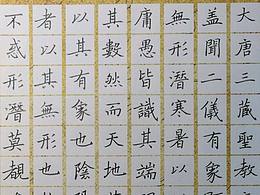 大唐三藏聖教
盖聞二儀有象
無形潛寒暑以
庸愚皆識其端
其數然而天地
以其有象也陰
者以其無形也
不惑形潛莫覩